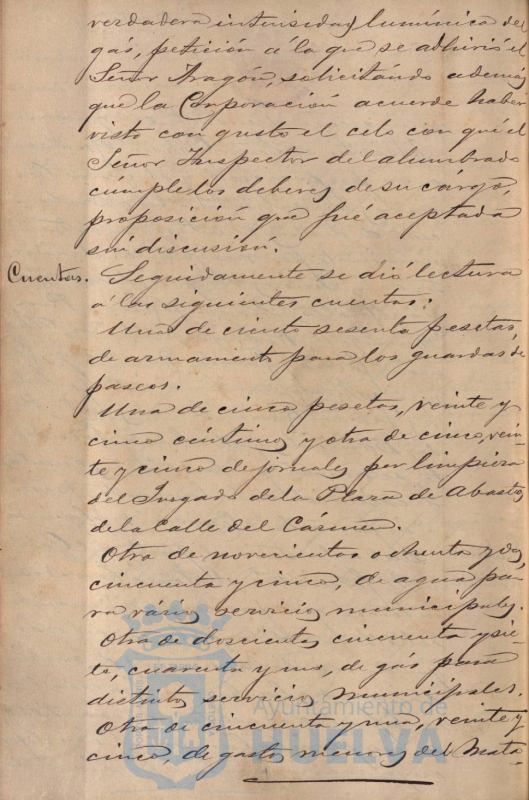 verdadera intensidad lumínica del
gás, petición á la que se adhirió el
Señor Aragón, solicitándo además
que la Corporación acuerde haber
visto con gusto el celo con qué el
Señor Inspector del alumbrado
cúmple los deberes de su cárgo,
proposición que fué aceptada
sin discusión.
Cuentas. Seguidamente se dió lectura
á las siguientes cuentas:
Una de ciento sesenta pesetas,
de armamento para los guardas de
paseos.
Una de cinco pesetas, veinte y
cinco céntimos y otra de cinco, vein
te y cinco de jornales por limpieza
del Juzgado de la Plaza de Abastos
de la Calle del Cármen.
Otra de novecientas ochenta y dos,
cincuenta y cinco, de agua pa
ra vários servicios municipales.
Otra de doscientas cincuenta y sie-
te, cuarenta y uno, de gás para
distintos servicios municipales.
Otra de cincuenta y una, veinte y
cinco, de gastos menores del Mata-
Ayuntamiento de
HUELVA